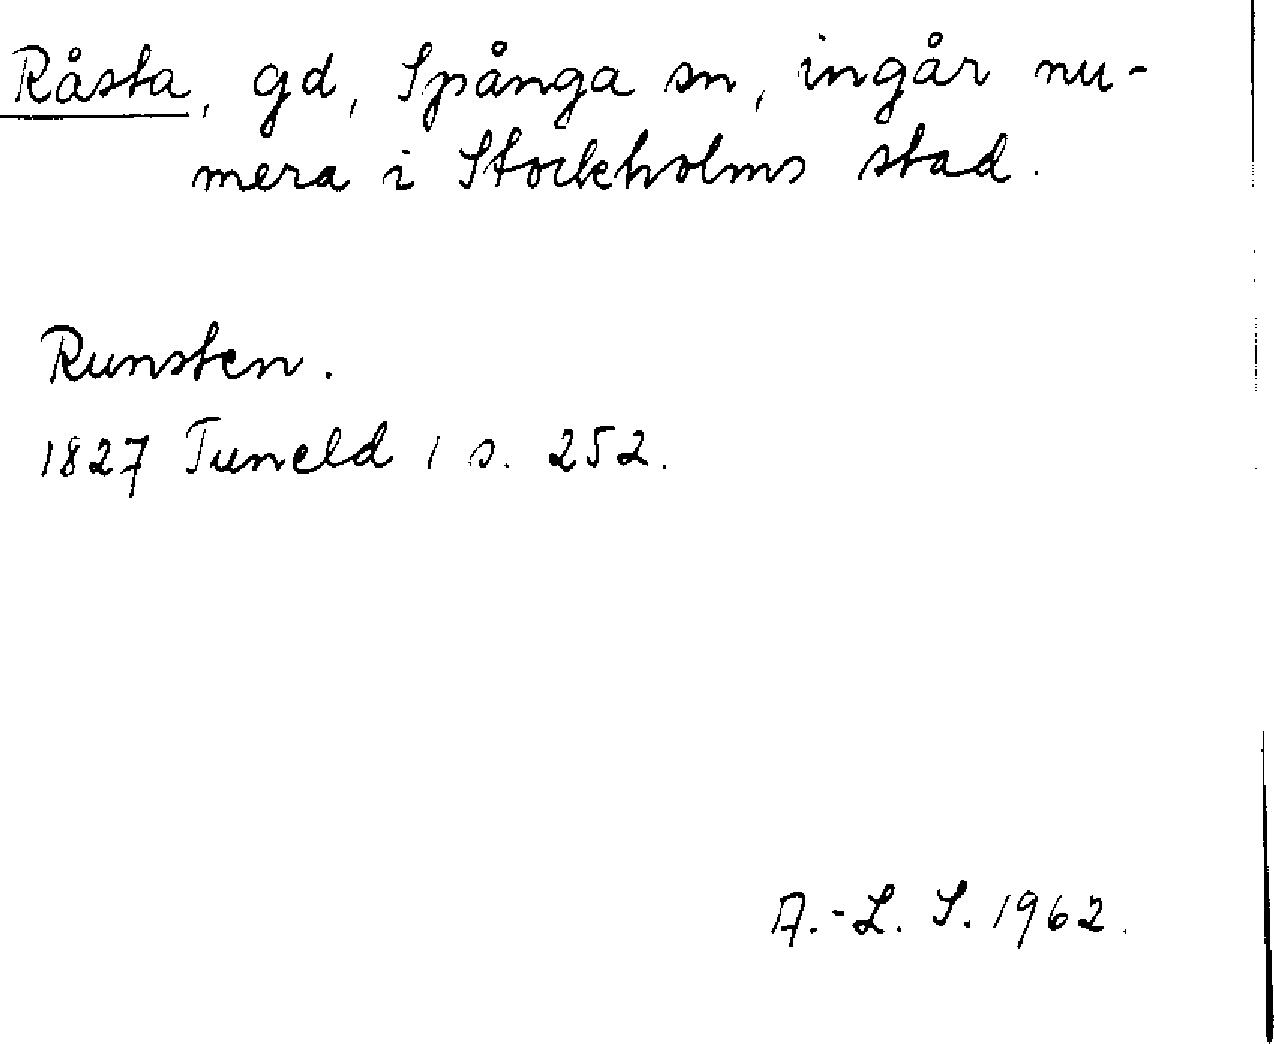 Råsta, gd, Spånga sn, ingår nu-
mera i Stockholms stad.
Runsten.
1827 Tuneld 1 s. 252.
A.-L. S. 1962.